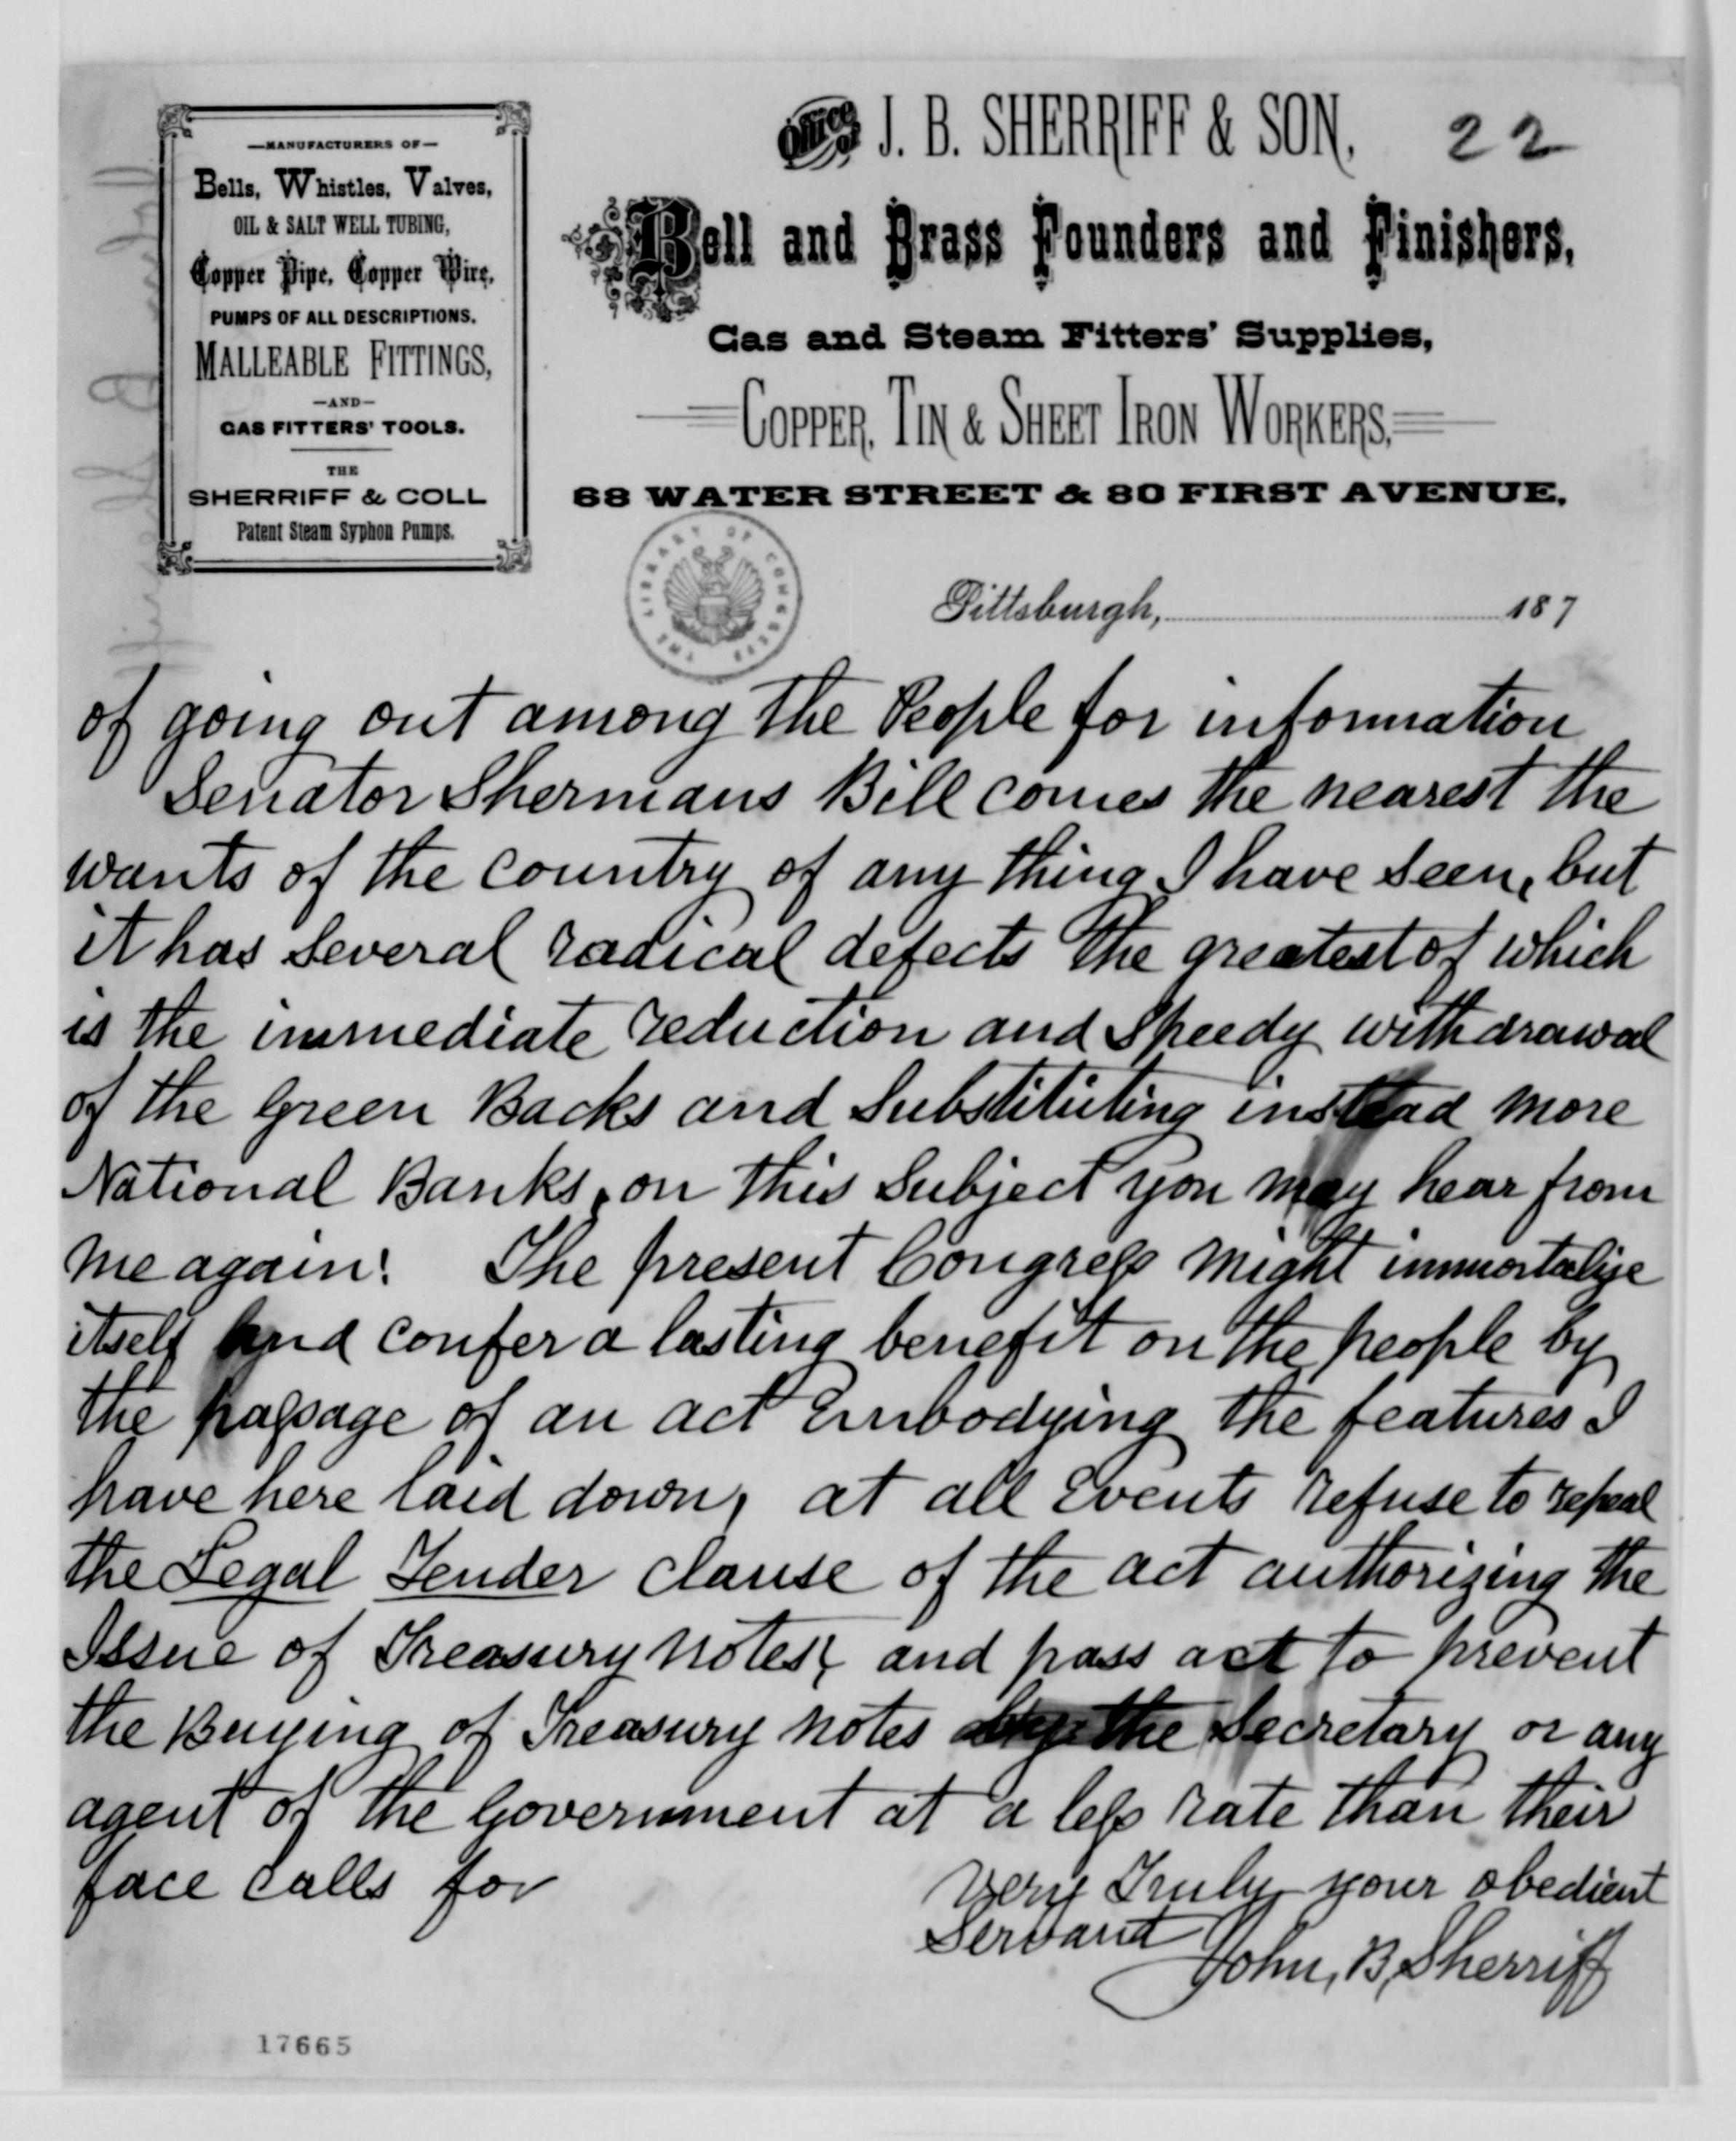 —MANUFACTURERS OF—
Bells, Whistles, Valves,
OIL & SALT WELL TUBING,
Copper Pipe, Copper Wire,
PUMPS OF ALL DESCRIPTIONS.
MALLEABLE FITTINGS,
—AND—
GAS FITTERS' TOOLS.
THE
SHERRIFF & COLL
Patent Steam Syphon Pumps.
Office of J. B. SHERRIFF & SON,
22
Bell and Brass Founders and Finishers,
Gas and Steam Fitters' Supplies,
COPPER, TIN & SHEET IRON WORKERS,
68 WATER STREET & 80 FIRST AVENUE,
THE LIBRARY OF CONGRESS
Pittsburgh, 187
of going out among the People for information
Senator Shermans Bill comes the nearest the
wants of the country of any thing I have seen, but
it has several radical defects the greatest of which
is the immediate reduction and speedy withdrawal
of the Green Backs and substituting instead more
National Banks, on this subject you may hear from
me again! The present Congress might immortalize
itself and confer a lasting benefit on the people by
the passage of an act Embodying the features I
have here laid down, at all Events refuse to repeal
the Legal Tender clause of the act authorizing the
Issue of Treasury notes, and pass act to prevent
the Buying of Treasury notes by the Secretary or any
agent of the Government at a less rate than their
face calls for
Very Truly your obedient
Servant
John, B, Sherriff
17665